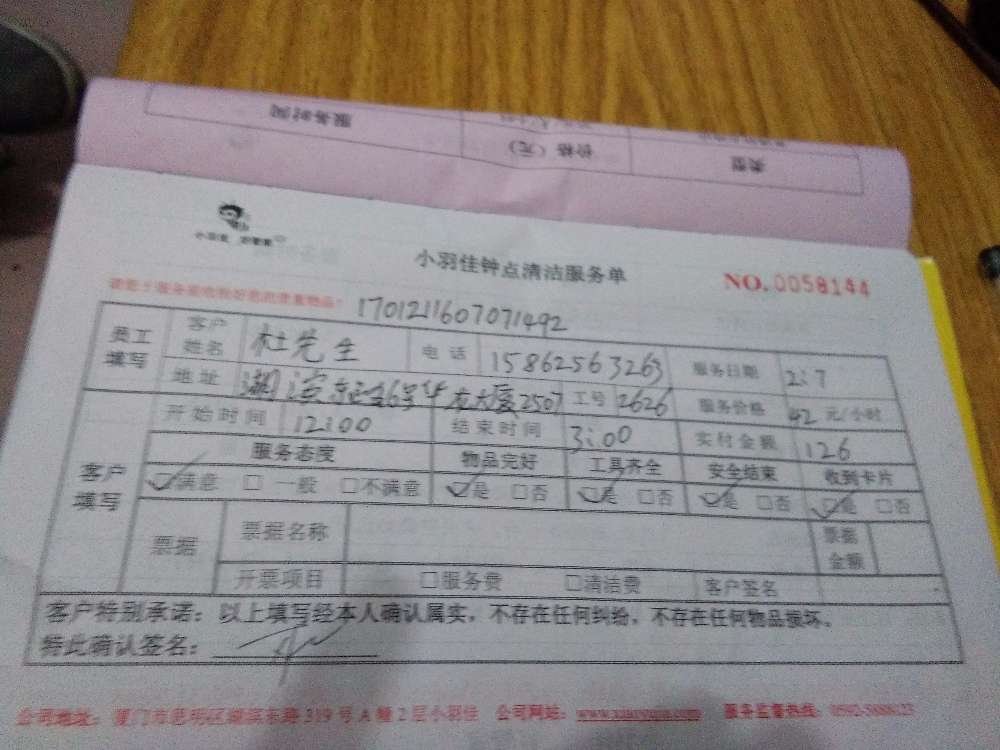 服务时间 价格（元） 类型
小羽佳钟点清洁服务单
NO.0058144
1701211607071492
员工填写 客户姓名 杜先生 电话 15862563263 服务日期 2:7
地址 湖滨东路6号华龙大厦2507 工号 2626 服务价格 42元/小时
客户填写 开始时间 12:00 结束时间 3:00 实付金额 126
服务态度 物品完好 工具齐全 安全结束 收到卡片
满意 □ 一般 □不满意 是 □否 是 □否 是 □否 是 □否
票据 票据名称 票据金额
开票项目 □服务费 □清洁费 客户签名
客户特别承诺：以上填写经本人确认属实，不存在任何纠纷，不存在任何物品损坏。
特此确认签名：
公司地址：厦门市思明区湖滨东路319号A幢2层小羽佳 公司网站： 服务监督热线：